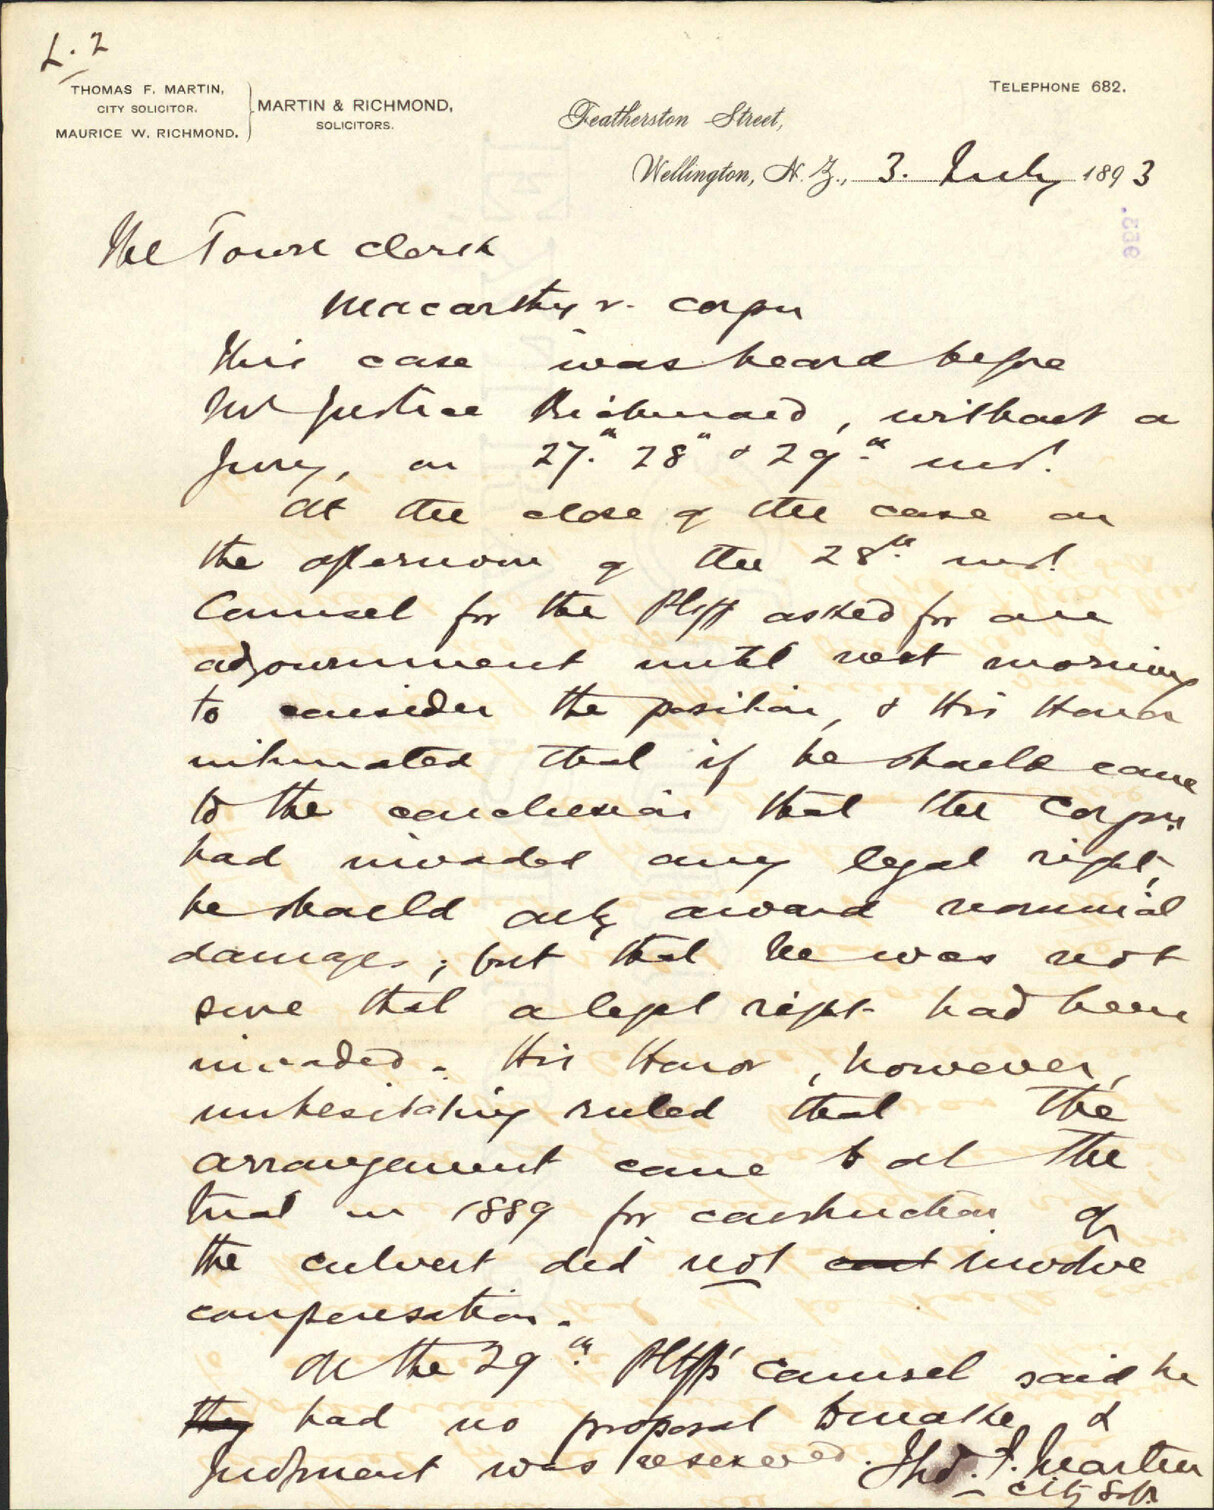 L. 2
THOMAS F. MARTIN,
CITY SOLICITOR.
MAURICE W. RICHMOND.
MARTIN & RICHMOND,
SOLICITORS.
TELEPHONE 682.
Featherston Street,
Wellington, N.Z., 3. July 1893
955.
The Town Clerk
Macarthy v. Corpn
This case was heard before
Mr Justice Richmond, without a
jury, on 27th 28th & 29th inst.
At the close of the case on
the afternoon of the 28th inst.
Counsel for the Pltff asked for an
adjournment until next morning
to consider the position, & His Honor
intimated that if he should come
to the conclusion that the Corpn
had invaded any legal right,
he should only award nominal
damages; but that he was not
sure that a legal right had been
invaded. His Honor, however,
unhesitating ruled that the
arrangement come to at the
trial in 1889 for construction of
the culvert did not involve
compensation.
On the 29th Pltff's Counsel said he
they had no proposal to make &
judgment was reserved.
Thos. F. Martin
City Solr